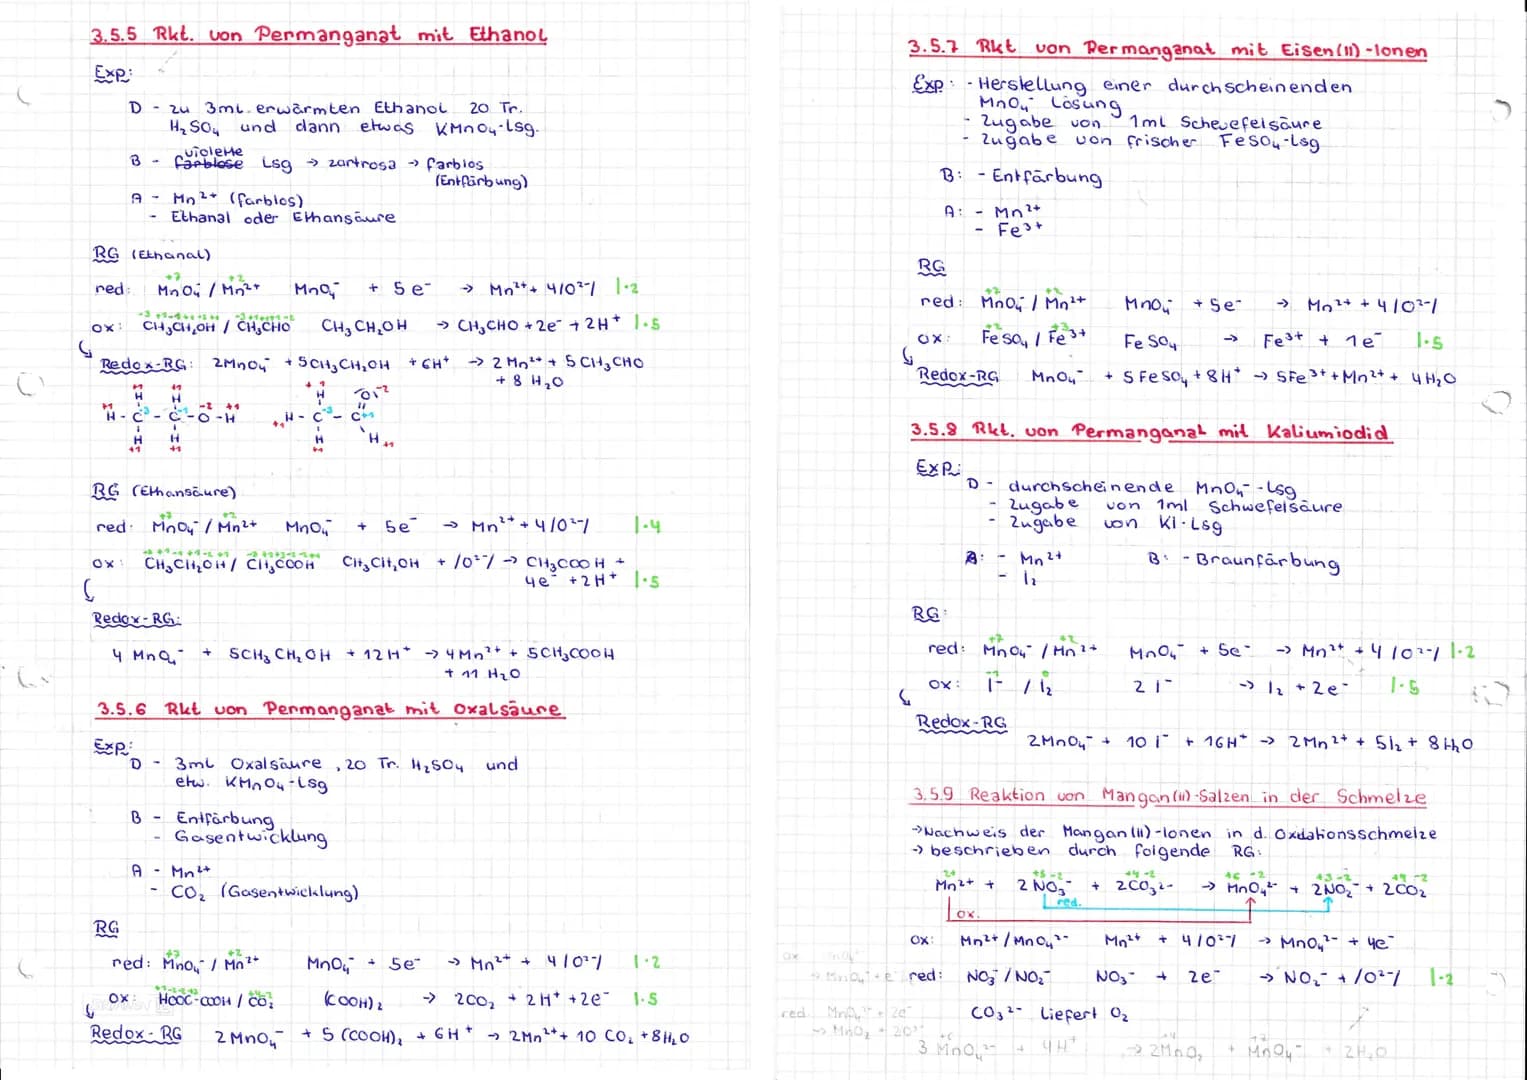 3.5.5 Rkt. von Permanganat mit Ethanol
Exp:
D - zu 3mL erwärmten Ethanol 20 Tr.
H₂SO₄ und dann etwas KMnO₄-Lsg.
violette
B - farblose Lsg → zartrosa → farblos
(Entfärbung)
A - Mn²⁺ (farblos)
- Ethanal oder Ethansäure
RG (Ethanal)
+7 +2
red: MnO₄⁻ / Mn²⁺ MnO₄⁻ + 5e⁻ → Mn²⁺ + 4/O²⁻/ |·2
ox: CH₃CH₂OH / CH₃CHO CH₃CH₂OH → CH₃CHO + 2e⁻ + 2H⁺ |·5
Redox-RG: 2MnO₄⁻ + 5CH₃CH₂OH + 6H⁺ → 2Mn²⁺ + 5CH₃CHO
+ 8 H₂O
RG (Ethansäure)
+7 +2
red: MnO₄⁻ / Mn²⁺ MnO₄⁻ + 5e⁻ → Mn²⁺ + 4/O²⁻/ |·4
ox: CH₃CH₂OH / CH₃COOH CH₃CH₂OH + /O²⁻/ → CH₃COOH +
4e⁻ + 2H⁺ |·5
Redox-RG:
4 MnO₄⁻ + 5CH₃CH₂OH + 12H⁺ → 4Mn²⁺ + 5CH₃COOH
+ 11 H₂O
3.5.6 Rkt von Permanganat mit Oxalsäure
Exp:
D - 3mL Oxalsäure, 20 Tr. H₂SO₄ und
etw. KMnO₄-Lsg
B - Entfärbung
- Gasentwicklung
A - Mn²⁺
- CO₂ (Gasentwicklung)
RG
+7 +2
red: MnO₄⁻ / Mn²⁺ MnO₄⁻ + 5e⁻ → Mn²⁺ + 4/O²⁻/ |·2
ox: HOOC-COOH / CO₂ (COOH)₂ → 2CO₂ + 2H⁺ + 2e⁻ |·5
Redox-RG 2MnO₄⁻ + 5(COOH)₂ + 6H⁺ → 2Mn²⁺ + 10 CO₂ + 8H₂O
3.5.7 Rkt von Permanganat mit Eisen(II)-Ionen
Exp: - Herstellung einer durchscheinenden
MnO₄⁻ Lösung
- Zugabe von 1ml Schwefelsäure
- Zugabe von frischer FeSO₄-Lsg
B: - Entfärbung
A: - Mn²⁺
- Fe³⁺
RG
+7 +2
red: MnO₄⁻ / Mn²⁺ MnO₄⁻ + 5e⁻ → Mn²⁺ + 4/O²⁻/
+2 +3
ox: FeSO₄ / Fe³⁺ FeSO₄ → Fe³⁺ + 1e⁻ |·5
Redox-RG MnO₄⁻ + 5FeSO₄ + 8H⁺ → 5Fe³⁺ + Mn²⁺ + 4H₂O
3.5.8 Rkt. von Permanganat mit Kaliumiodid
Exp:
D - durchscheinende MnO₄⁻-Lsg
- Zugabe von 1ml Schwefelsäure
- Zugabe von KI-Lsg
A: - Mn²⁺ B: - Braunfärbung
- I₂
RG:
+7 +2
red: MnO₄⁻ / Mn²⁺ MnO₄⁻ + 5e⁻ → Mn²⁺ + 4/O²⁻/ |·2
-1 0
ox: I⁻ / I₂ 2I⁻ → I₂ + 2e⁻ |·5
Redox-RG
2MnO₄⁻ + 10 I⁻ + 16H⁺ → 2Mn²⁺ + 5I₂ + 8H₂O
3.5.9 Reaktion von Mangan(II)-Salzen in der Schmelze
→ Nachweis der Mangan(II)-Ionen in d. Oxidationsschmelze
→ beschrieben durch folgende RG:
2+ +5 -2 +4 -2 +6 -2 +3 -2 +4 -2
Mn²⁺ + 2NO₃⁻ + 2CO₃²⁻ → MnO₄²⁻ + 2NO₂⁻ + 2CO₂
red.
ox.
ox: Mn²⁺/MnO₄²⁻ Mn²⁺ + 4/O²⁻/ → MnO₄²⁻ + 4e⁻
red: NO₃⁻/NO₂⁻ NO₃⁻ + 2e⁻ → NO₂⁻ + /O²⁻/ |·2
CO₃²⁻ liefert O₂
3 MnO₄²⁻ + 4H⁺ → 2MnO₄⁻ + MnO₂ + 2H₂O